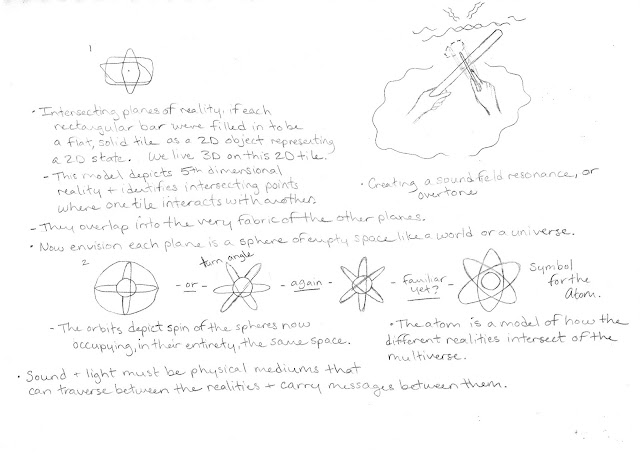 1
• Intersecting planes of reality, if each
rectangular bar were filled in to be
a flat, solid tile as a 2D object representing
a 2D state. We live 3D on this 2D tile.
- This model depicts 5th dimensional
reality + identifies intersecting points
where one tile interacts with another.
• Creating a sound field resonance, or
overtone
- They overlap into the very fabric of the other planes.
• Now envision each plane is a sphere of empty space like a world or a universe.
2
turn angle
- or -
- again -
- familiar
yet? -
Symbol
for the
Atom.
- The orbits depict spin of the spheres now
occupying, in their entirety, the same space.
• The atom is a model of how the
different realities intersect of the
multiverse.
• Sound + light must be physical mediums that
can traverse between the realities + carry messages between them.